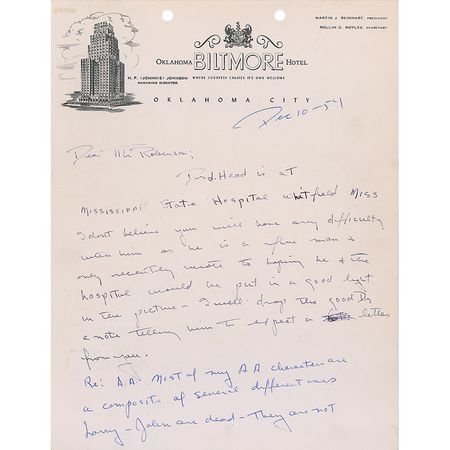 MARTIN J. REINHART, PRESIDENT
ROLLIN C. BOYLES, SECRETARY
OKLAHOMA BILTMORE HOTEL
H. P. (JOHNNIE) JOHNSON
MANAGING DIRECTOR
WHERE COURTESY CREATES IT'S OWN WELCOME
OKLAHOMA CITY
Dec 10-54
Dear Mr Robinson;
Head is at
Mississippi State Hospital Whitfield Miss
I dont believe you will have any difficulty
with him as he is a fine man &
only recently wrote to hoping he & the
hospital would be put in a good light
in the picture - I will drop the good Dr
a note telling him to expect a letter
from you.
Re: A.A: Most of my AA characters are
a composite of several different ones
Larry - John are dead - They are not